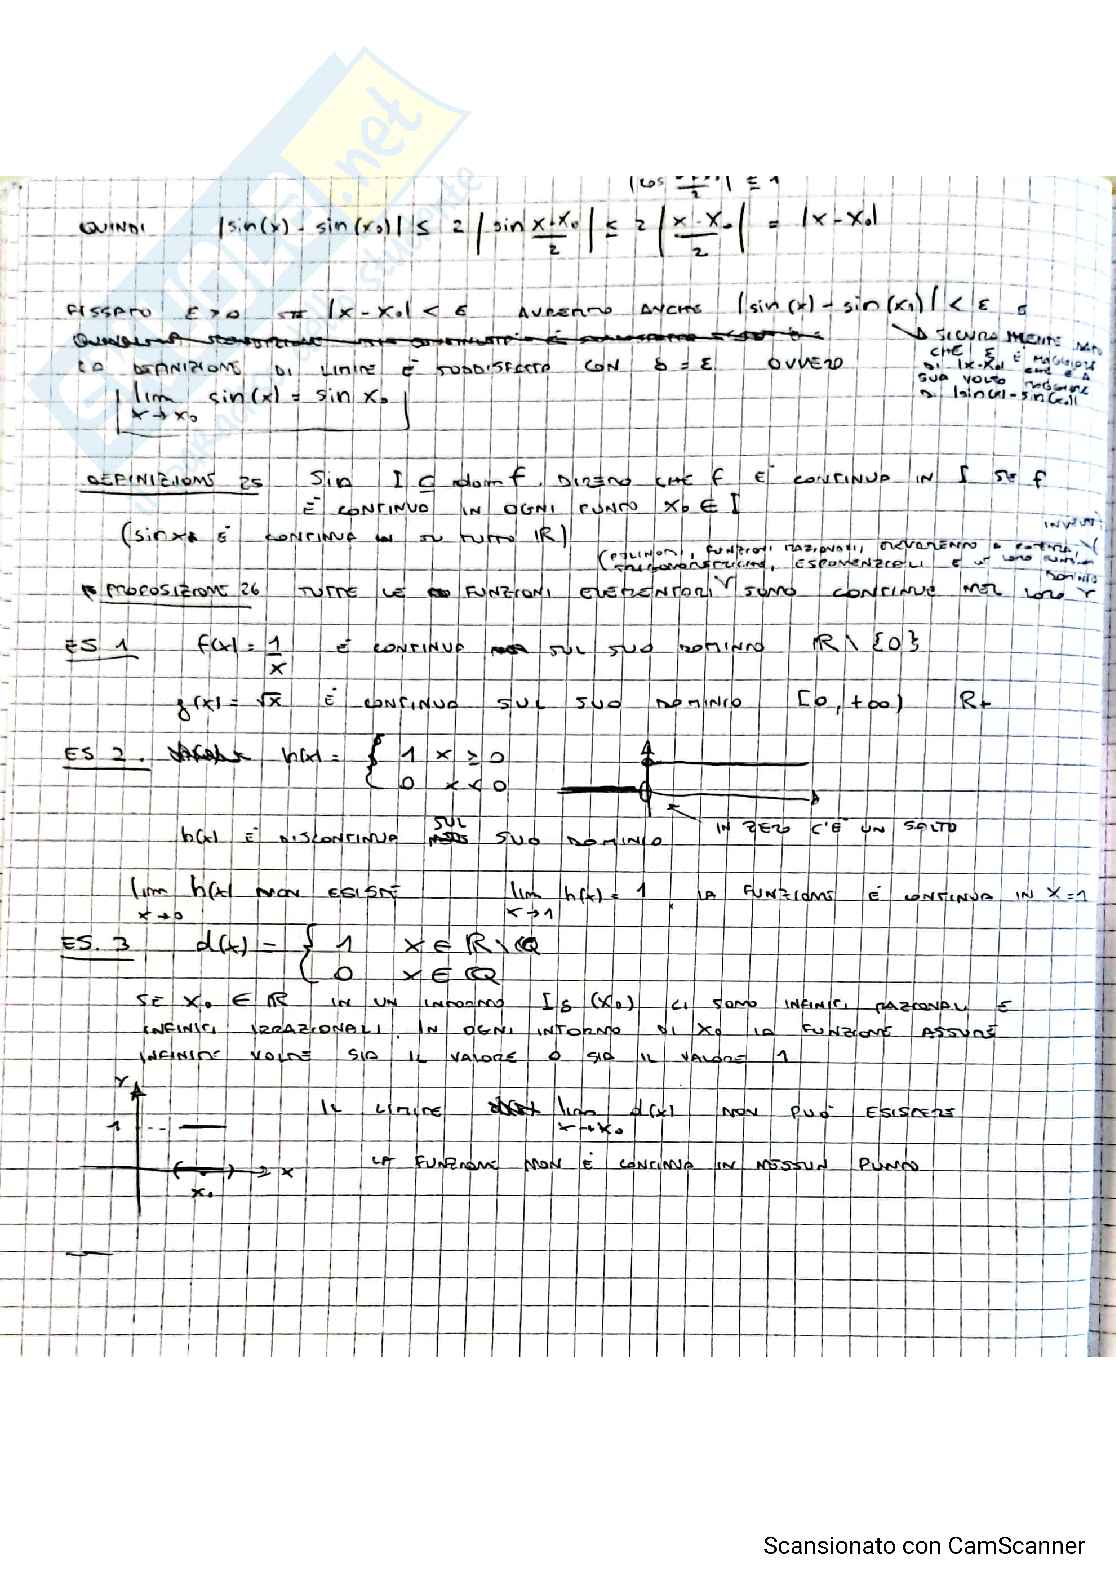 |cos 2| ≤ 1
QUINDI |sin(x) - sin(x₀)| ≤ 2 |sin (x-x₀)/2| ≤ 2 |(x-x₀)/2| = |x-x₀|
FISSATO ε>0 SE |x-x₀| < ε AVREMO ANCHE |sin(x) - sin(x₀)| < ε E
LA DEFINIZIONE DI LIMITE È SODDISFATTA CON δ = ε OVVERO
lim x→x₀ sin(x) = sin x₀
SICURAMENTE DATO
CHE ε È MAGGIORE
DI |x-x₀| CHE È A
SUA VOLTA MAGGIORE
DI |sin(x)-sin(x₀)|
DEFINIZIONE 25 Sia I ⊆ dom f. DIREMO CHE f È CONTINUA IN I SE f
È CONTINUA IN OGNI PUNTO x₀ ∈ I
(sin x È CONTINUA SU TUTTO ℝ)
(POLINOMI, FUNZIONI RAZIONALI, ELEVAMENTO A POTENZA,
TRIGONOMETRICHE, ESPONENZIALI E
PROPOSIZIONE 26 TUTTE LE FUNZIONI ELEMENTARI SONO CONTINUE NEL LORO
DOMINIO
ES 1 f(x) = 1/x È CONTINUA SUL SUO DOMINIO ℝ\{0}
g(x) = √x È CONTINUA SUL SUO DOMINIO [0,+∞) R+
ES 2. h(x) = { 1 x ≥ 0
0 x < 0
IN ZERO C'È UN SALTO
h(x) È DISCONTINUA SUL SUO DOMINIO
lim x→0 h(x) NON ESISTE lim x→1 h(x) = 1. LA FUNZIONE È CONTINUA IN X=1
ES. 3 d(x) = { 1 x ∈ ℝ\ℚ
0 x ∈ ℚ
SE x₀ ∈ ℝ IN UN INTORNO Iδ(x₀) CI SONO INFINITI RAZIONALI E
INFINITI IRRAZIONALI. IN OGNI INTORNO DI x₀ LA FUNZIONE ASSUME
INFINITE VOLTE SIA IL VALORE 0 SIA IL VALORE 1
Y
1
x
x₀
IL LIMITE lim x→x₀ d(x) NON PUÒ ESISTERE
LA FUNZIONE NON È CONTINUA IN NESSUN PUNTO
Scansionato con CamScanner